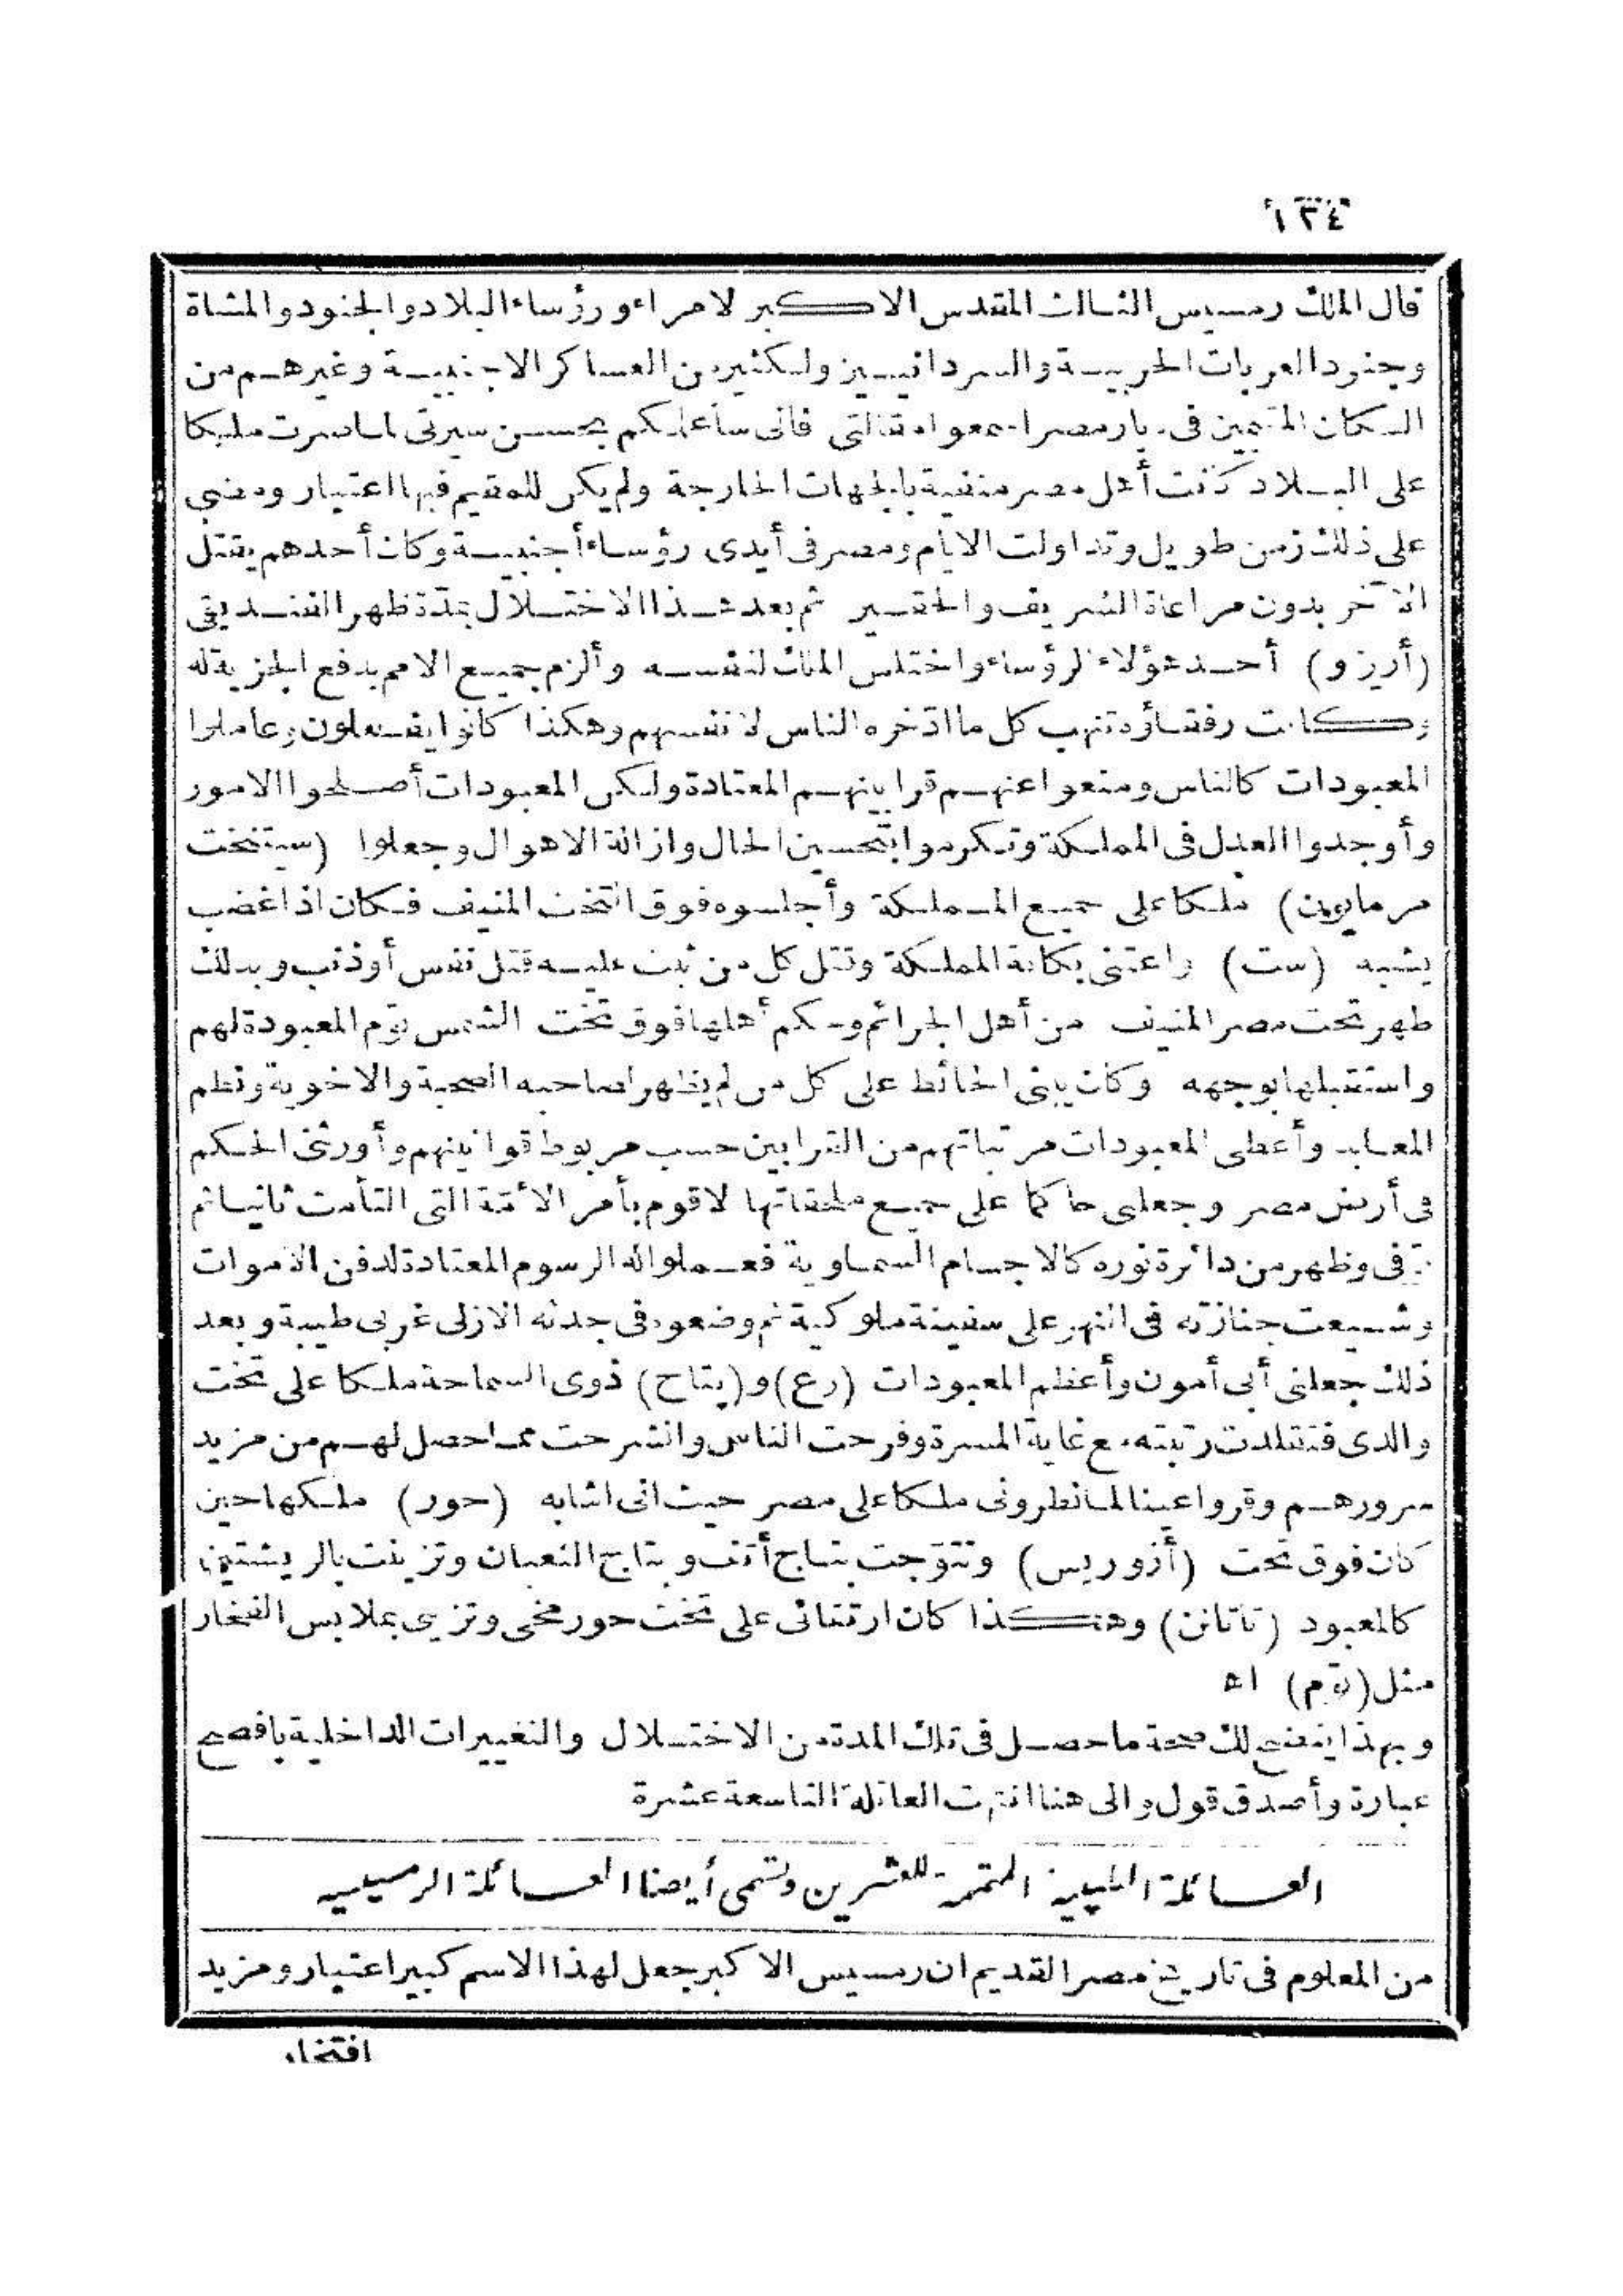 ١٣٤
قال الملك رمسيس الثالث المقدس الاكبر لامراء ورؤساء البلاد والجنود والمشاة
وجنود العربات الحربية والسردانيين ولكثير من العساكر الاجنبية وغيرهم من
السكان المقيمين فى ديار مصر اسمعوا مقالتى فانى سأعلمكم بحسن سيرتى لما صرت مليكا
على البلاد كانت أهل مصر منفية بالجهات الخارجة ولم يكن للمقيم فيها اعتبار ومضى
على ذلك زمن طويل وتداولت الايام ومصر فى أيدى رؤساء أجنبية وكان أحدهم يقتل
الآخر بدون مراعاة الشريف والحقير ثم بعد هذا الاختلال بمدّة ظهر الفنديقى
(أرزو) أحد هؤلاء الرؤساء واختلس الملك لنفسه وألزم جميع الامم بدفع الجزية له
وكانت رفقاؤه تنهب كل ما ادّخره الناس لانفسهم وهكذا كانوا يفعلون وعاملوا
المعبودات كالناس ومنعوا عنهم قرابينهم المعتادة ولكن المعبودات أصلحوا الامور
وأوجدوا العدل فى المملكة وتكرموا بتحسين الحال وازالة الاهوال وجعلوا (سيتنخت
مرمايون) ملكا على جميع المملكة وأجلسوه فوق التخت المنيف فكان اذا غضب
يشبه (ست) واعتنى بكافة المملكة وقتل كل من ثبت عليه قتل نفس أو ذنب وبذلك
طهر تخت مصر المنيف من أهل الجرائم وحكم أهلها فوق تخت الشمس توم المعبودة لهم
واستقبلها بوجهه وكان يبنى الحائط على كل من لم يظهر لصاحبه الصحبة والاخوية ونظم
المعابد وأعطى المعبودات مرتباتهم من القرابين حسب مربوط قوانينهم وأورثنى الحكم
فى أرض مصر وجعلنى حاكما على جميع ملحقاتها لاقوم بأمر الأمّة التى التأمت ثانيا ثم
توفى وظهر من دائرة نوره كالاجسام السماوية فعملوا له الرسوم المعتادة لدفن الاموات
وشيعت جنازته فى النهر على سفينة ملوكية ثم وضعوه فى جدثه الازلى غربى طيبة وبعد
ذلك جعلنى أبى أمون وأعظم المعبودات (رع) و(پتاح) ذوى السماحة ملكا على تخت
والدى فتقلدت رتبته مع غاية المسرة وفرحت الناس وانشرحت مما حصل لهم من مزيد
سرورهم وقروا عينا لما نظرونى ملكا على مصر حيث انى اشابه (حور) ملكها حين
كان فوق تخت (أزوريس) وتتوّجت بتاج أتف وبتاج الثعبان وتزينت بالريشتين
كالمعبود (تاتانن) وهكذا كان ارتقائى على تخت حور مخى وتزيى بملابس الفخار
مثل (توم) اه
وبهذا يتضح لك صحة ما حصل فى تلك المدة من الاختلال والتغييرات الداخلية بافصح
عبارة وأصدق قول والى هنا انتهت العائلة التاسعة عشرة
العائلة الطيبية المتممة للعشرين وتسمى أيضا العائلة الرمسيسيه
من المعلوم فى تاريخ مصر القديم ان رمسيس الاكبر جعل لهذا الاسم كبير اعتبار ومزيد
افتخار